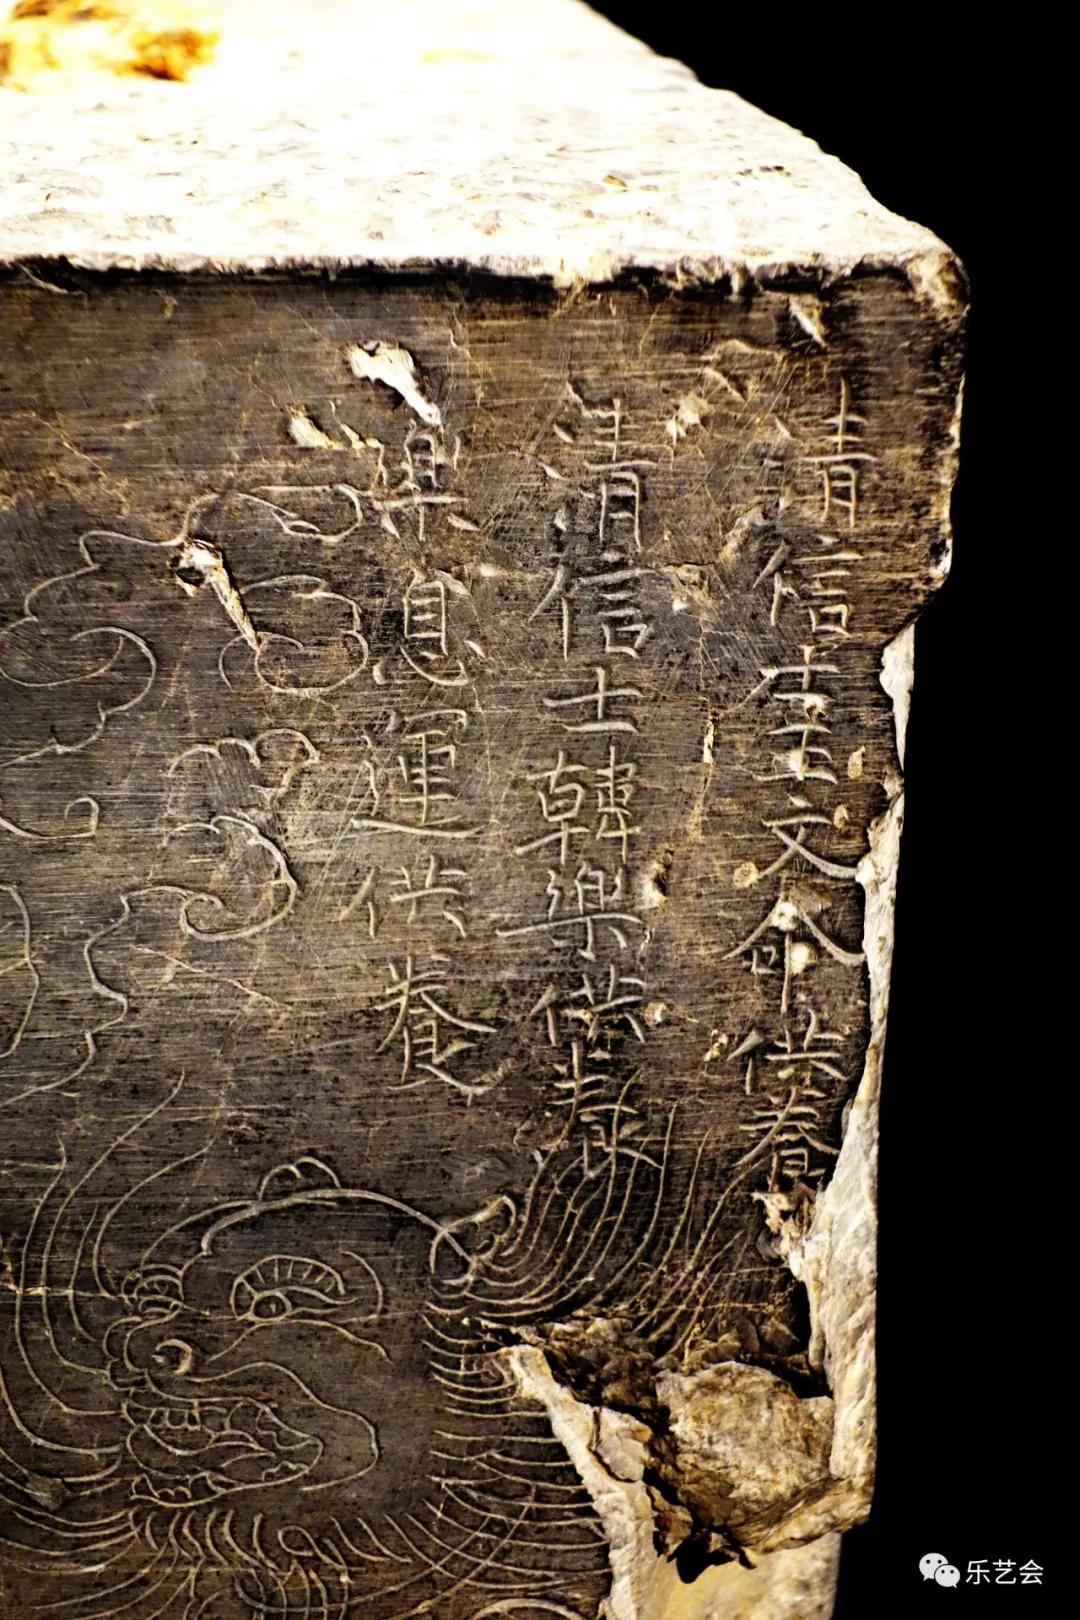 清信士王文命供養
清信士韓樂供養
樂息運供養
乐艺会